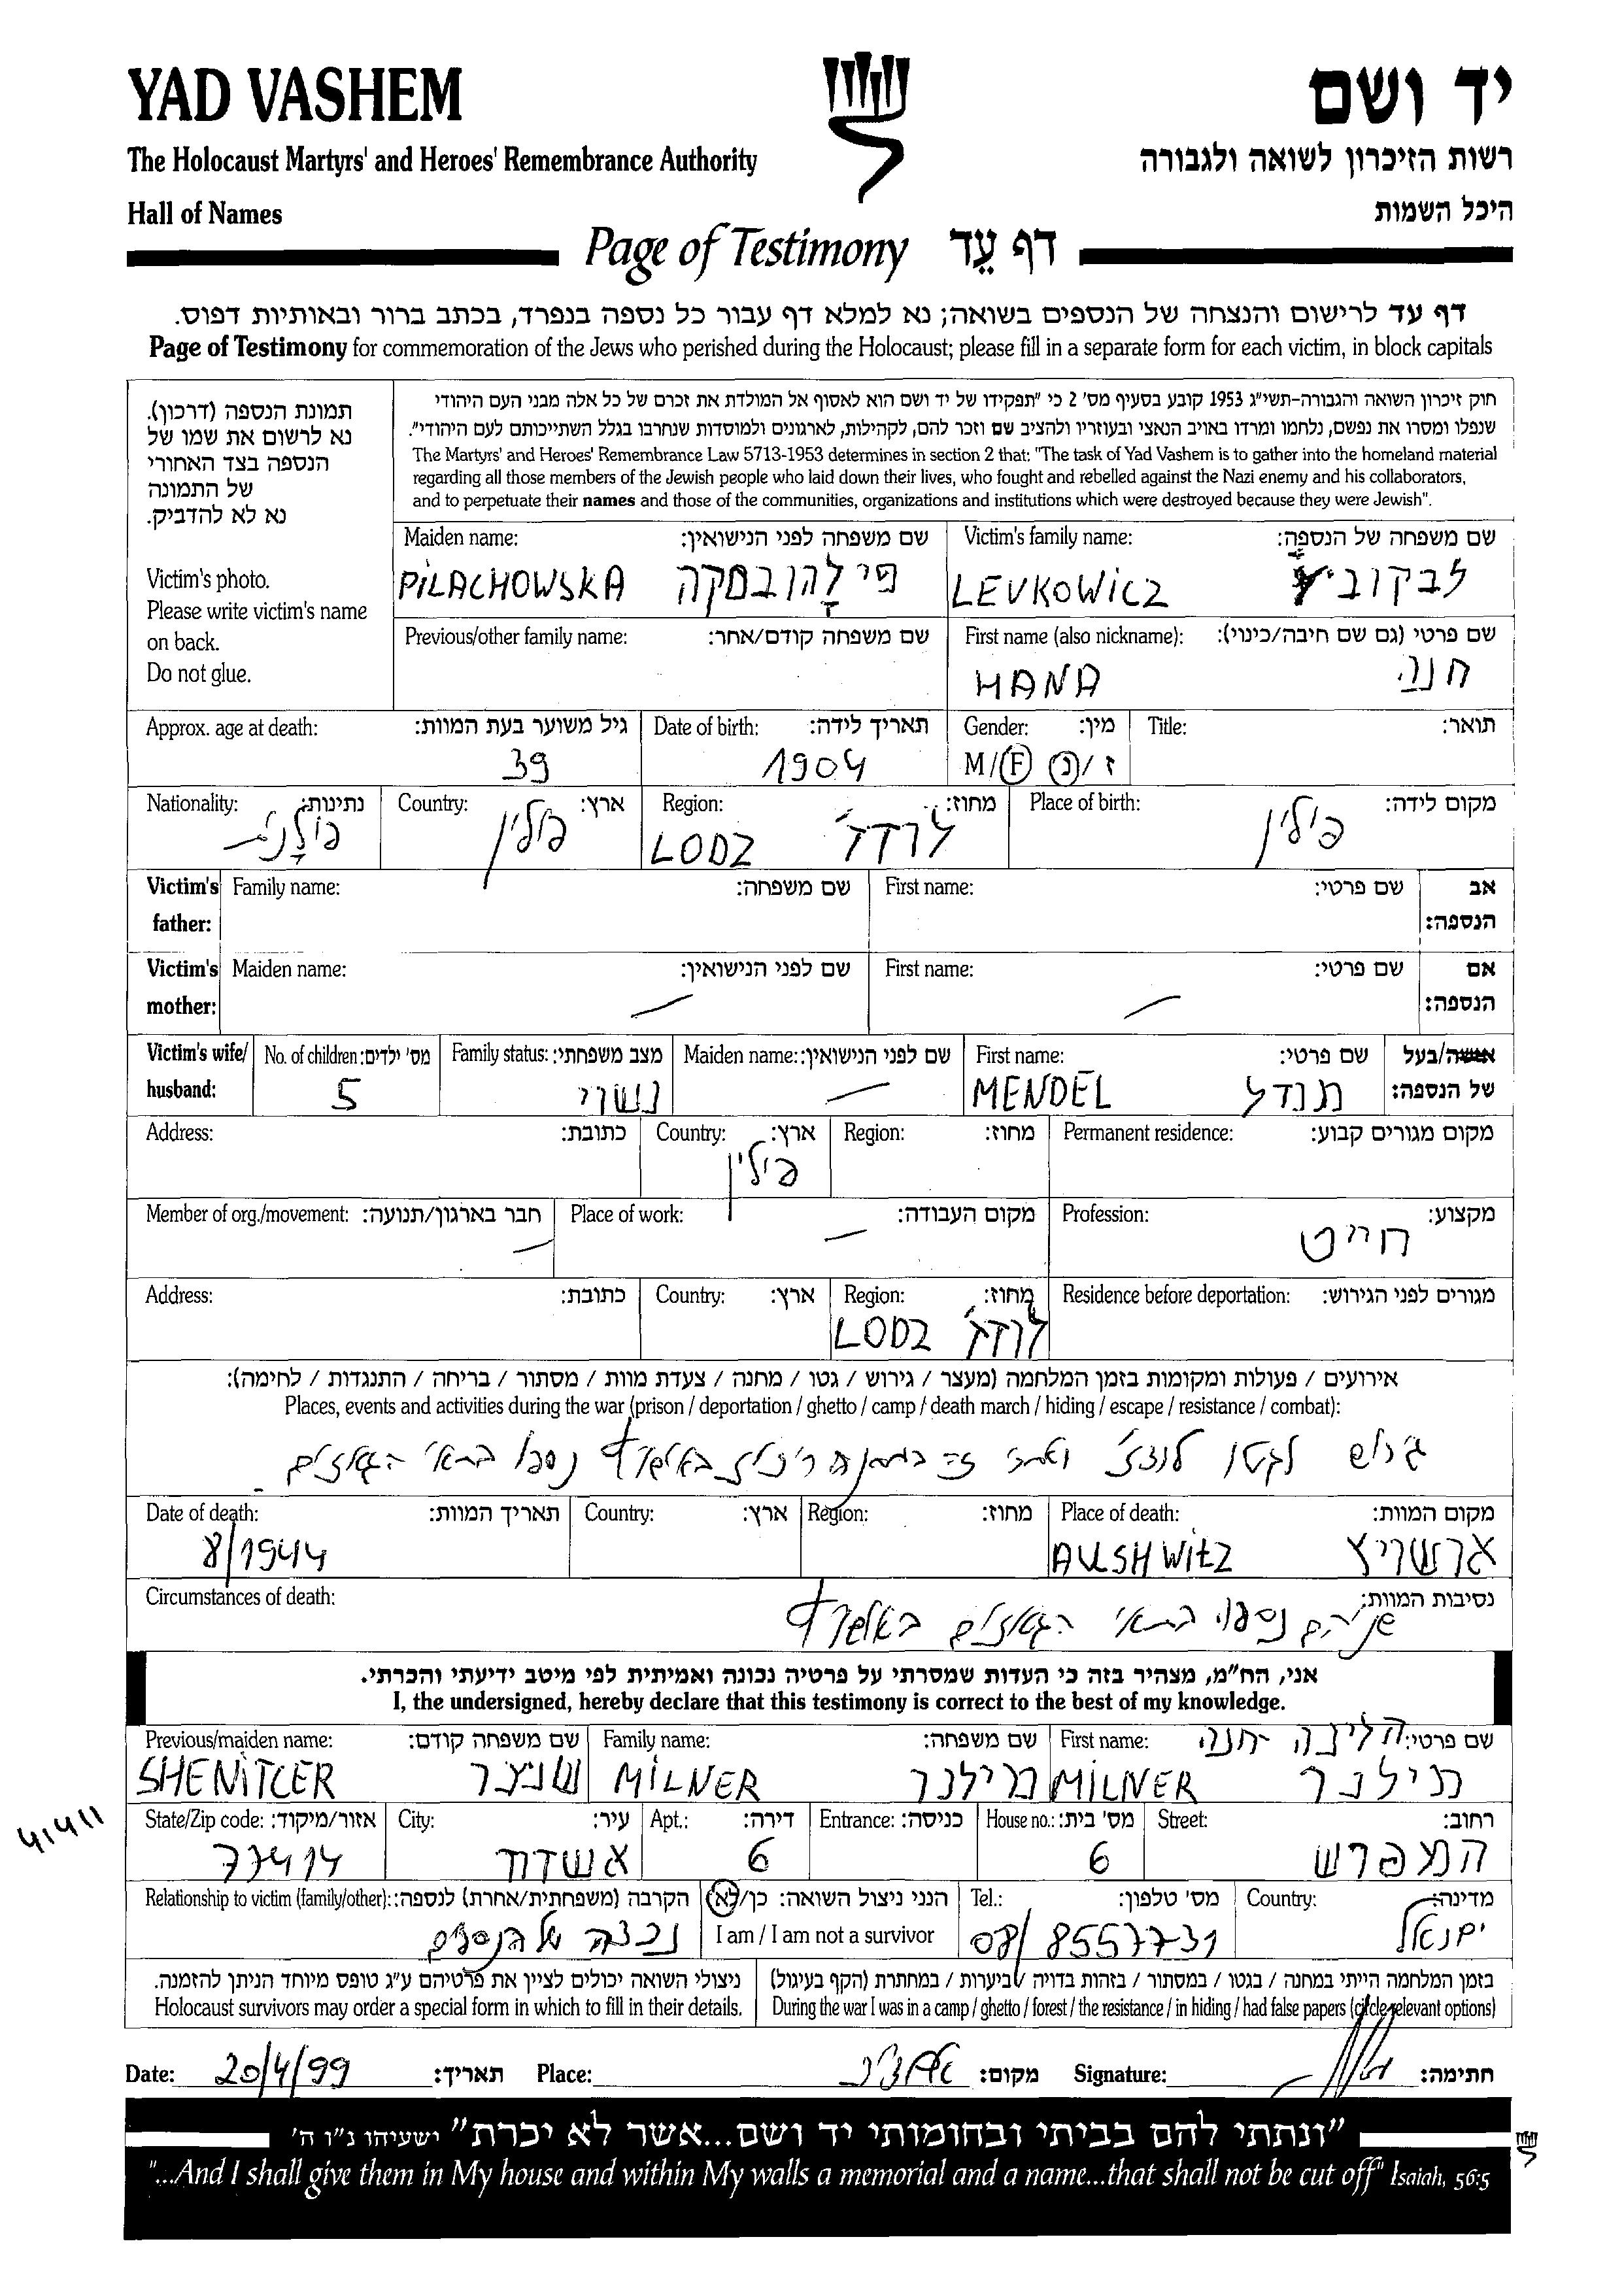 YAD VASHEM
יד ושם
The Holocaust Martyrs' and Heroes' Remembrance Authority
רשות הזיכרון לשואה ולגבורה
Hall of Names
היכל השמות
Page of Testimony דף עֵד
דף עד לרישום והנצחה של הנספים בשואה; נא למלא דף עבור כל נספה בנפרד, בכתב ברור ובאותיות דפוס.
Page of Testimony for commemoration of the Jews who perished during the Holocaust; please fill in a separate form for each victim, in block capitals
תמונת הנספה (דרכון).
נא לרשום את שמו של
הנספה בצד האחורי
של התמונה
נא לא להדביק.
Victim's photo.
Please write victim's name
on back.
Do not glue.
חוק זיכרון השואה והגבורה-תשי"ג 1953 קובע בסעיף מס' 2 כי "תפקידו של יד ושם הוא לאסוף אל המולדת את זכרם של כל אלה מבני העם היהודי
שנפלו ומסרו את נפשם, נלחמו ומרדו באויב הנאצי ובעוזריו ולהציב שם וזכר להם, לקהילות, לארגונים ולמוסדות שנחרבו בגלל השתייכותם לעם היהודי".
The Martyrs' and Heroes' Remembrance Law 5713-1953 determines in section 2 that: "The task of Yad Vashem is to gather into the homeland material
regarding all those members of the Jewish people who laid down their lives, who fought and rebelled against the Nazi enemy and his collaborators,
and to perpetuate their names and those of the communities, organizations and institutions which were destroyed because they were Jewish".
Maiden name: שם משפחה לפני הנישואין:
PILACHOWSKA
Victim's family name: שם משפחה של הנספה:
LEVKOWICZ לבקוביץ
Previous/other family name: שם משפחה קודם/אחר:
First name (also nickname): שם פרטי (גם שם חיבה/כינוי):
HANA חנה
Approx. age at death: גיל משוער בעת המוות:
39
Date of birth: תאריך לידה:
1904
Gender: מין:
M/F ז/נ
Title: תואר:
Nationality: נתינות:
פולני
Country: ארץ:
פולין
Region: מחוז:
LODZ לודז'
Place of birth: מקום לידה:
פולין
Victim's father: Family name: שם משפחה: First name: שם פרטי: אב הנספה:
Victim's mother: Maiden name: שם לפני הנישואין: First name: שם פרטי: אם הנספה:
Victim's wife/ husband: No. of children: מס' ילדים: Family status: מצב משפחתי: Maiden name: שם לפני הנישואין: First name: שם פרטי: אישה/בעל של הנספה:
5 נשוי MENDEL מנדל
Address: כתובת: Country: ארץ: Region: מחוז: Permanent residence: מקום מגורים קבוע:
פולין
Member of org./movement: חבר בארגון/תנועה: Place of work: מקום העבודה: Profession: מקצוע:
חייט
Address: כתובת: Country: ארץ: Region: מחוז: Residence before deportation: מגורים לפני הגירוש:
LODZ לודז'
אירועים / פעולות ומקומות בזמן המלחמה (מעצר / גירוש / גטו / מחנה / צעדת מוות / מסתור / בריחה / התנגדות / לחימה):
Places, events and activities during the war (prison / deportation / ghetto / camp / death march / hiding / escape / resistance / combat):
גירוש לגטו לודז' ואחרי זה במחנה ריכוז באושויץ נספו בתאי הגאזים
Date of death: תאריך המוות: Country: ארץ: Region: מחוז: Place of death: מקום המוות:
8/1944 AUSHWITZ אושויץ
Circumstances of death: נסיבות המוות:
שניהם נספו בתאי הגאזים באושויץ
אני, הח"מ, מצהיר בזה כי העדות שמסרתי על פרטיה נכונה ואמיתית לפי מיטב ידיעתי והכרתי.
I, the undersigned, hereby declare that this testimony is correct to the best of my knowledge.
Previous/maiden name: שם משפחה קודם: Family name: שם משפחה: First name: שם פרטי: הלינה חנה
SHENITCER שניצר MILNER מילנר MILNER מילנר
41411
State/Zip code: אזור/מיקוד: City: עיר: Apt.: דירה: Entrance: כניסה: House no.: מס' בית: Street: רחוב:
77414 אשדוד 6 6 המפרש
Relationship to victim (family/other): הקרבה (משפחתית/אחרת) לנספה: הנני ניצול השואה: כן/לא Tel.: מס' טלפון: Country: מדינה:
נכדה של הנספים I am / I am not a survivor 08/8557731 ישראל
ניצולי השואה יכולים לציין את פרטיהם ע"ג טופס מיוחד הניתן להזמנה.
Holocaust survivors may order a special form in which to fill in their details.
בזמן המלחמה הייתי במחנה / בגטו / במסתור / בזהות בדויה / ביערות / במחתרת (הקף בעיגול)
During the war I was in a camp / ghetto / forest / the resistance / in hiding / had false papers (circle relevant options)
Date: 20/4/99 תאריך: Place: אשדוד מקום: Signature: חתימה:
"ונתתי להם בביתי ובחומותי יד ושם...אשר לא יכרת" ישעיהו נ"ו ה'
"...And I shall give them in My house and within My walls a memorial and a name...that shall not be cut off" Isaiah, 56:5